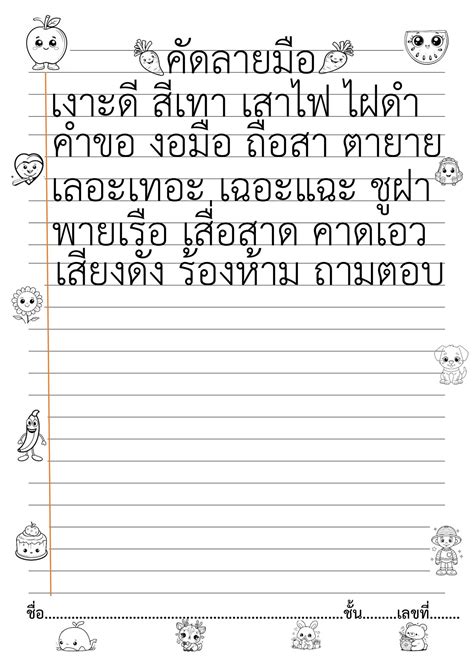 คัดลายมือ
เงาะดี สีเทา เสาไฟ ไฝดำ
คำขอ งอมือ ถือสา ตายาย
เลอะเทอะ เฉอะแฉะ ชูฝา
พายเรือ เสื่อสาด คาดเอว
เสียงดัง ร้องห้าม ถามตอบ
ชื่อ............................................................................ชั้น.........เลขที่........